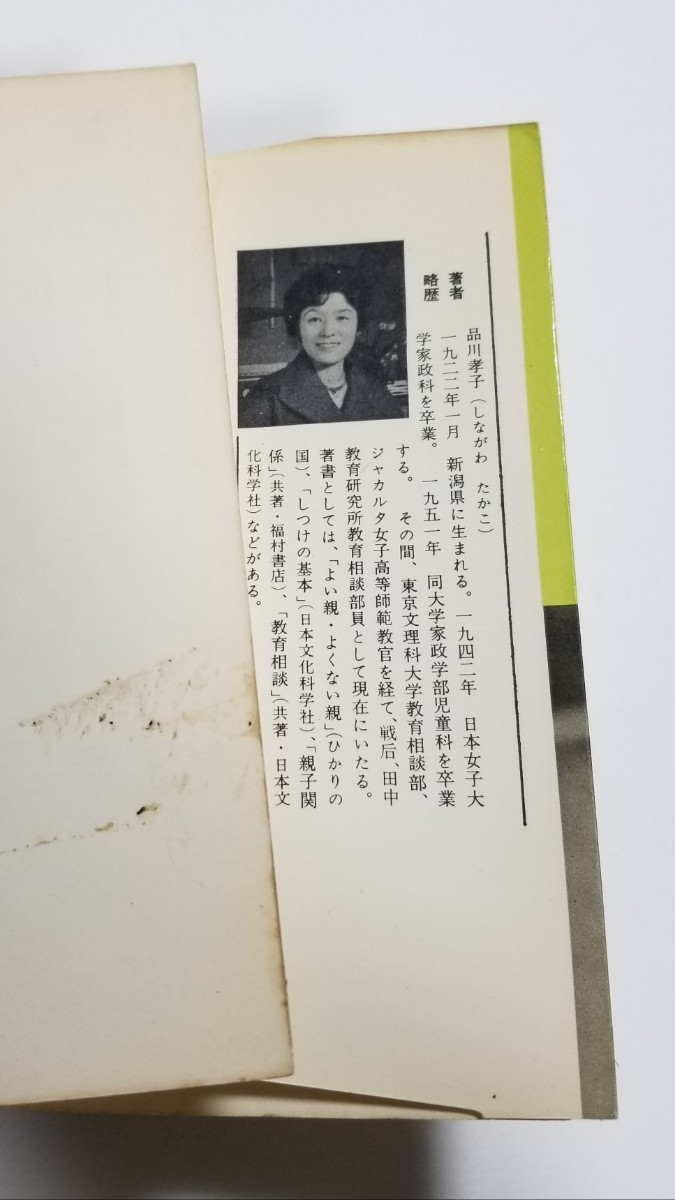 著者
略歴
品川孝子（しながわ　たかこ）
一九二二年一月　新潟県に生まれる。一九四二年　日本女子大
学家政科を卒業。　一九五一年　同大学家政学部児童科を卒業
する。　その間、東京文理科大学教育相談部、
ジャカルタ女子高等師範教官を経て、戦后、田中
教育研究所教育相談部員として現在にいたる。
著書としては、「よい親・よくない親」（ひかりの
国）、「しつけの基本」（日本文化科学社）、「親子関
係」（共著・福村書店）、「教育相談」（共著・日本文
化科学社）などがある。